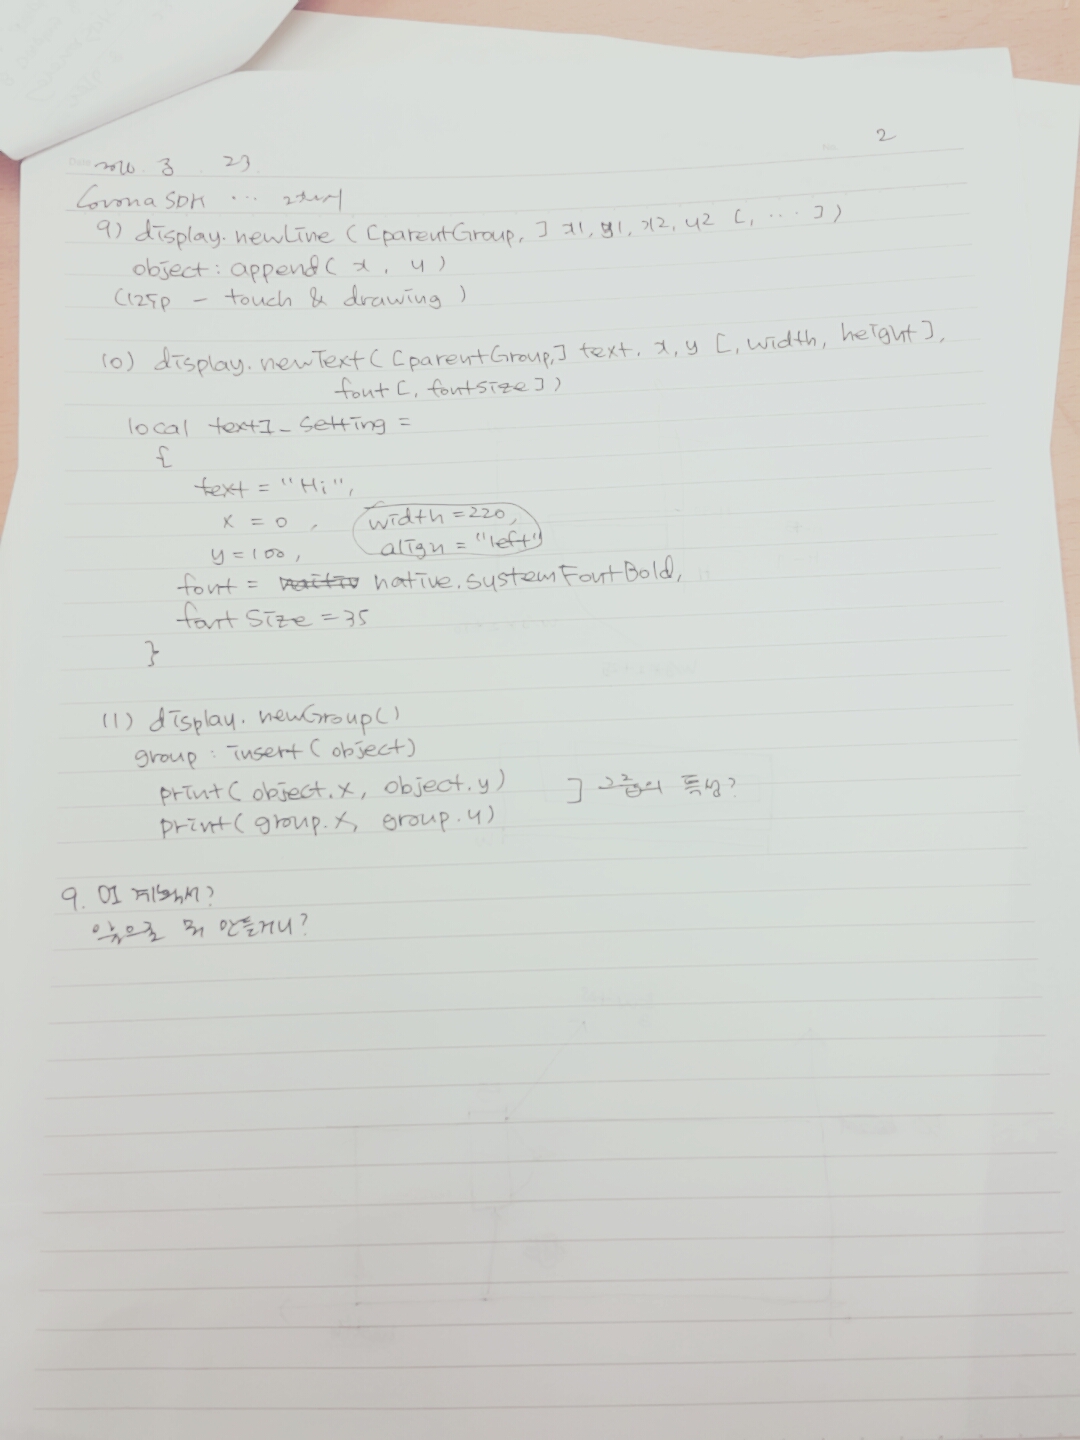 2
2016. 3. 23.
Corona SDK ... 2차시
9) display.newLine ( [parentGroup, ] x1, y1, x2, y2 [, ... ] )
object : append( x, y )
(125p - touch & drawing )
10) display.newText( [parentGroup,] text, x, y [, width, height],
font [, fontSize ] )
local text1_setting =
{
text = "Hi",
x = 0 , width = 220,
y = 100, align = "left"
font = native.systemFontBold,
fontSize = 35
}
11) display.newGroup()
group : insert ( object)
print( object.x, object.y) ] 그룹의 특성?
print( group.x, group.y)
9. 이 계획서?
앞으로 뭐 만들거니?